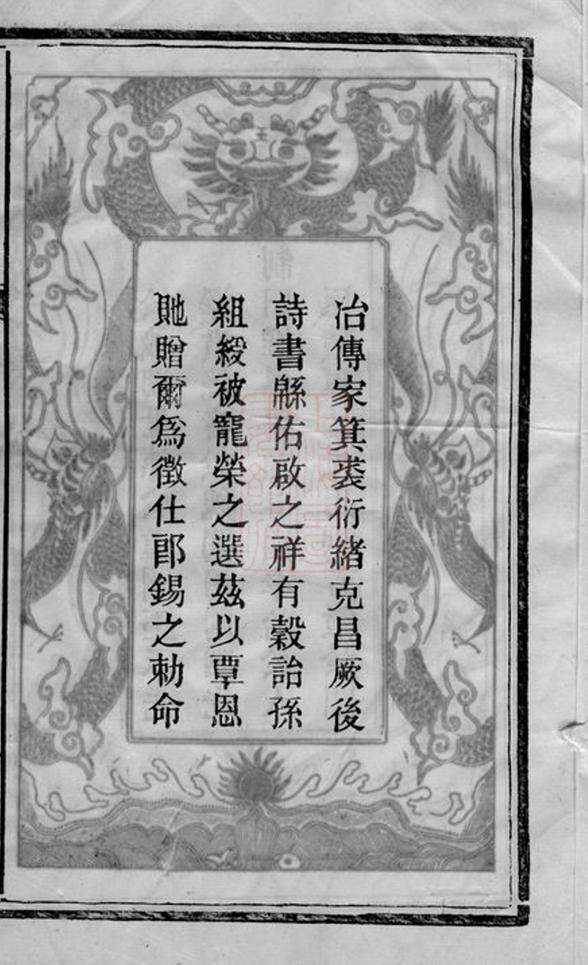 冶傳家箕裘衍緒克昌厥後
詩書緜佑啟之祥有穀詒孫
組綬被寵榮之選茲以覃恩
貤贈爾爲徵仕郎錫之勅命